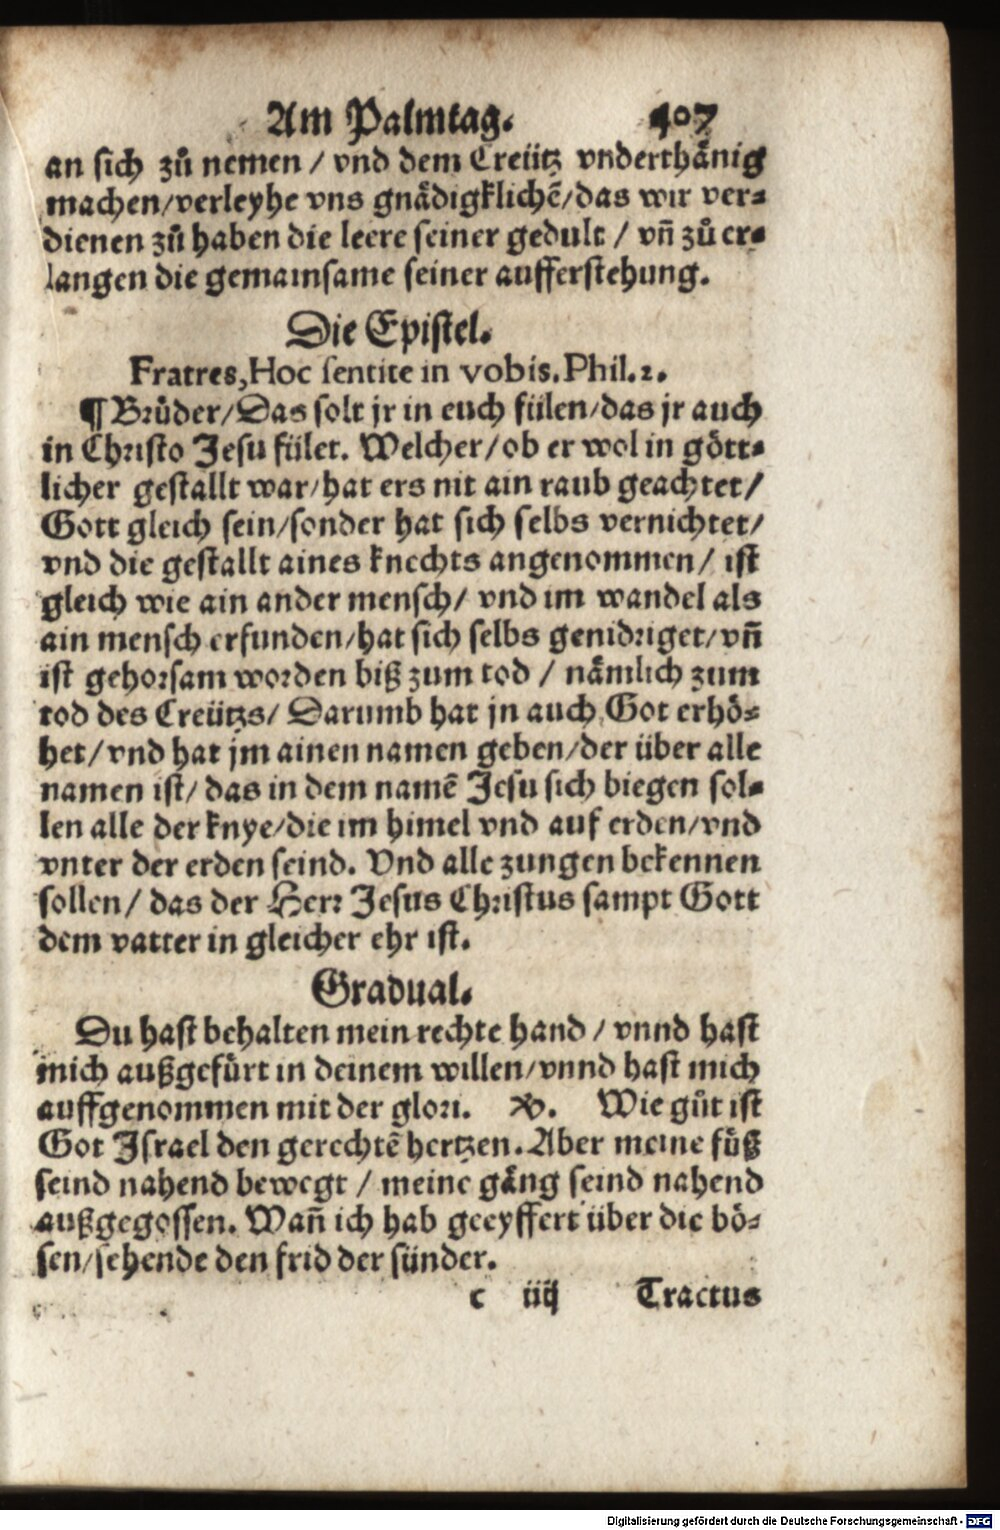 Am Palmtag. 407
an sich zů nemen / vnd dem Creütz vnderthänig
machen/verleyhe vns gnädigklichẽ/das wir ver-
dienen zů haben die leere seiner gedult / vñ zů er-
langen die gemainsame seiner aufferstehung.
Die Epistel.
Fratres, Hoc sentite in vobis. Phil. 2.
¶ Brüder/Das solt jr in euch fülen/das jr auch
in Christo Jesu fület. Welcher/ob er wol in gött-
licher gestallt war/hat ers nit ain raub geachtet/
Gott gleich sein/sonder hat sich selbs vernichtet/
vnd die gestallt aines knechts angenommen/ ist
gleich wie ain ander mensch/ vnd im wandel als
ain mensch erfunden/hat sich selbs genidriget/vñ
ist gehorsam worden biß zum tod / nämlich zum
tod des Creützs/ Darumb hat jn auch Got erhö-
het/vnd hat jm ainen namen geben/der über alle
namen ist/ das in dem namẽ Jesu sich biegen sol-
len alle der knye/die im himel vnd auf erden/vnd
vnter der erden seind. Vnd alle zungen bekennen
sollen/ das der Herr Jesus Christus sampt Gott
dem vatter in gleicher ehr ist.
Gradual.
Du hast behalten mein rechte hand / vnnd hast
mich außgefürt in deinem willen/vnnd hast mich
auffgenommen mit der glori. ℣. Wie gůt ist
Got Israel den gerechtẽ hertzen. Aber meine füß
seind nahend bewegt / meine gäng seind nahend
außgegossen. Wañ ich hab geeyffert über die bö-
sen/sehende den frid der sünder.
c iiij Tractus
Digitalisierung gefördert durch die Deutsche Forschungsgemeinschaft - DFG